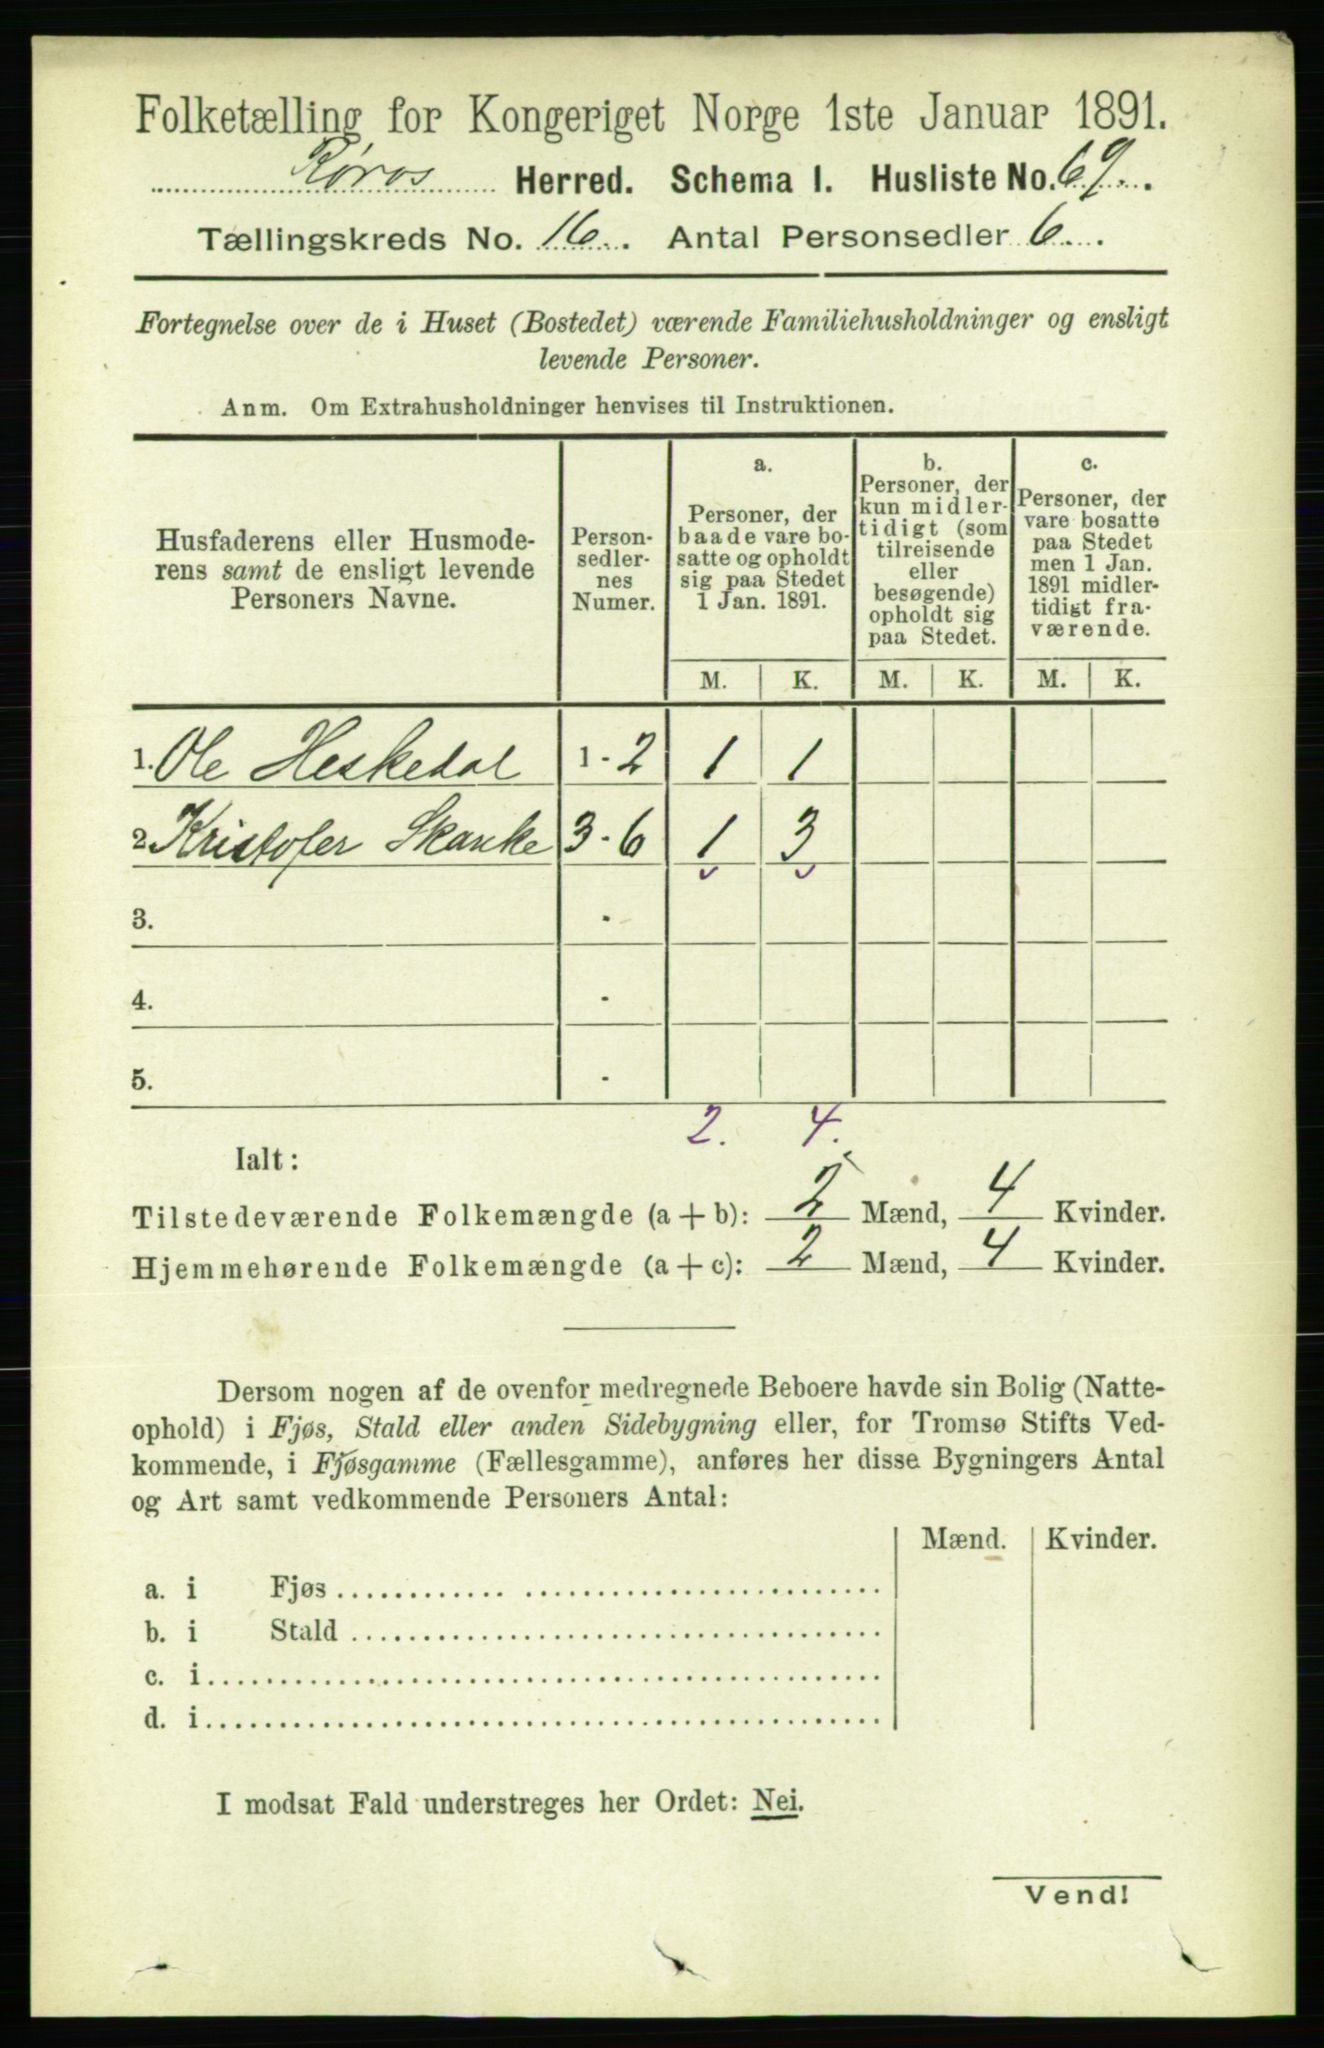 Folketælling for Kongeriget Norge 1ste Januar 1891.
Røros Herred. Schema I. Husliste No. 69.
Tællingskreds No. 16. Antal Personsedler 6.
Fortegnelse over de i Huset (Bostedet) værende Familiehusholdninger og ensligt
levende Personer.
Anm. Om Extrahusholdninger henvises til Instruktionen.
Husfaderens eller Husmode-
rens samt de ensligt levende
Personers Navne.
Person-
sedler-
nes
Numer.
a.
Personer, der
baade vare bo-
satte og opholdt
sig paa Stedet
1 Jan. 1891.
b.
Personer, der
kun midler-
tidigt (som
tilreisende
eller
besøgende)
opholdt sig
paa Stedet.
c.
Personer, der
vare bosatte
paa Stedet
men 1 Jan.
1891 midler-
tidigt fra-
værende.
M. K. M. K. M. K.
1. Ole Heskedal 1 - 2 1 1
2. Kristofer Skanke 3 - 6 1 3
3. -
4. -
5. -
2. 4.
Ialt:
Tilstedeværende Folkemængde (a + b): 2 Mænd, 4 Kvinder.
Hjemmehørende Folkemængde (a + c): 2 Mænd, 4 Kvinder.
Dersom nogen af de ovenfor medregnede Beboere havde sin Bolig (Natte-
ophold) i Fjøs, Stald eller anden Sidebygning eller, for Tromsø Stifts Ved-
kommende, i Fjøsgamme (Fællesgamme), anføres her disse Bygningers Antal
og Art samt vedkommende Personers Antal:
Mænd. Kvinder.
a. i Fjøs
b. i Stald
c. i
d. i
I modsat Fald understreges her Ordet: Nei.
Vend!